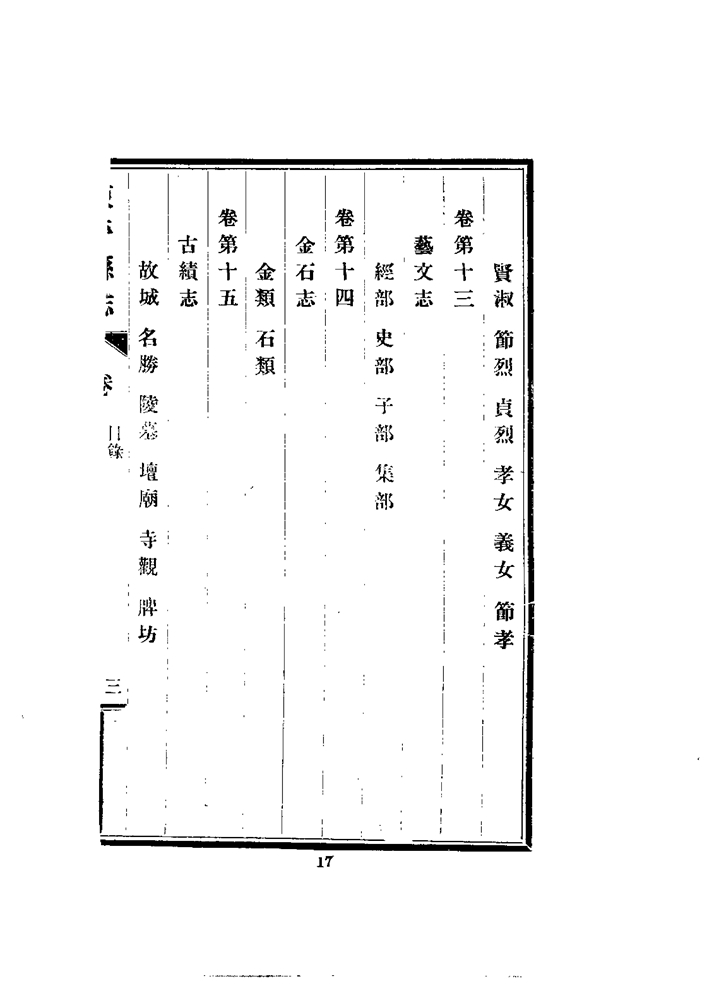 賢淑 節烈 貞烈 孝女 義女 節孝
卷第十三
藝文志
經部 史部 子部 集部
卷第十四
金石志
金類 石類
卷第十五
古績志
故城 名勝 陵墓 壇廟 寺觀 牌坊
縣志 卷 目錄 三
17